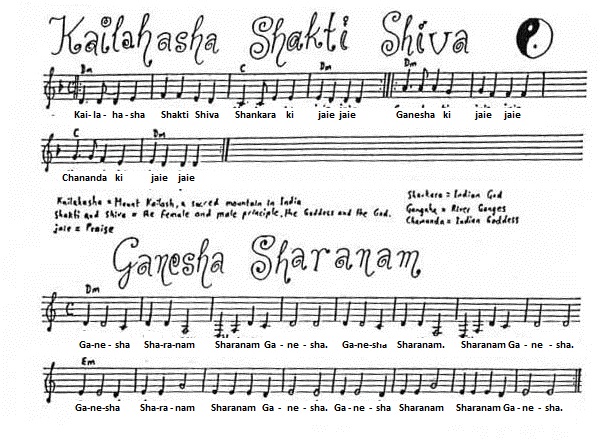 Kailahasha Shakti Shiva
Dm C Dm Dm
Kai-la-ha-sha Shakti Shiva Shankara ki jaie jaie Ganesha ki jaie jaie
C Dm
Chananda ki jaie jaie
Kailakasha = Mount Kailash, a sacred mountain in India
Shakti and Shiva = the female and male principle, the Goddess and the God.
jaie = Praise
Shankara = Indian God
Gangaha = River Ganges
Chamanda = Indian Goddess
Ganesha Sharanam
Dm
Ga-ne-sha Sha-ra-nam Sharanam Ga-ne-sha. Ga-ne-sha Sharanam. Sharanam Ga-ne-sha.
Em
Ga-ne-sha Sha-ra-nam Sharanam Ga-ne-sha. Ga-ne-sha Sharanam Sharanam Ga-ne-sha.